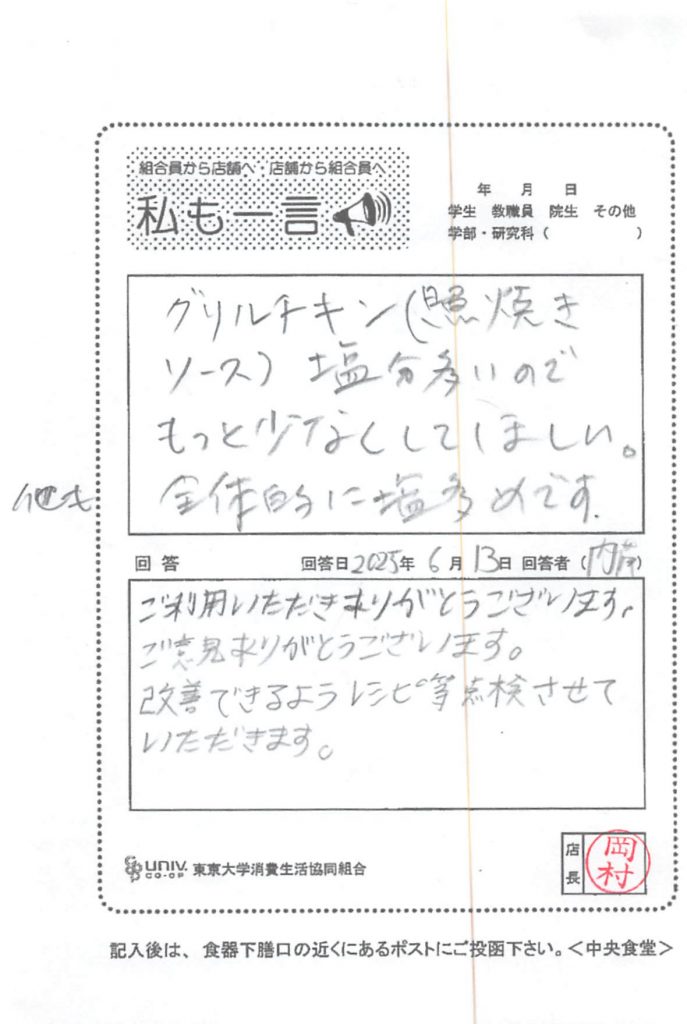 組合員から店舗へ・店舗から組合員へ
私も一言
年 月 日
学生 教職員 院生 その他
学部・研究科（ ）
グリルチキン(照焼き
ソース) 塩分多いので
もっと少なくしてほしい。
他も 全体的に塩多めです.
回答 回答日2025年 6月13日 回答者（内藤）
ご利用いただきありがとうございます。
ご意見ありがとうございます。
改善できるようレシピ等点検させて
いただきます。
UNIV. CO-OP 東京大学消費生活協同組合
店長 岡村
記入後は、食器下膳口の近くにあるポストにご投函下さい。＜中央食堂＞